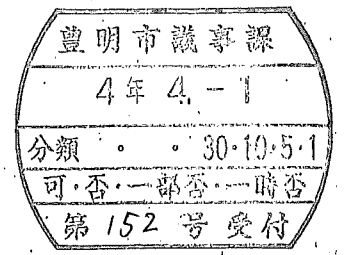 豊明市議事課
4年 4.-1
分類 ・ ・ 30・10・5・1
可・否・一部否・一時否
第 152 号 受付